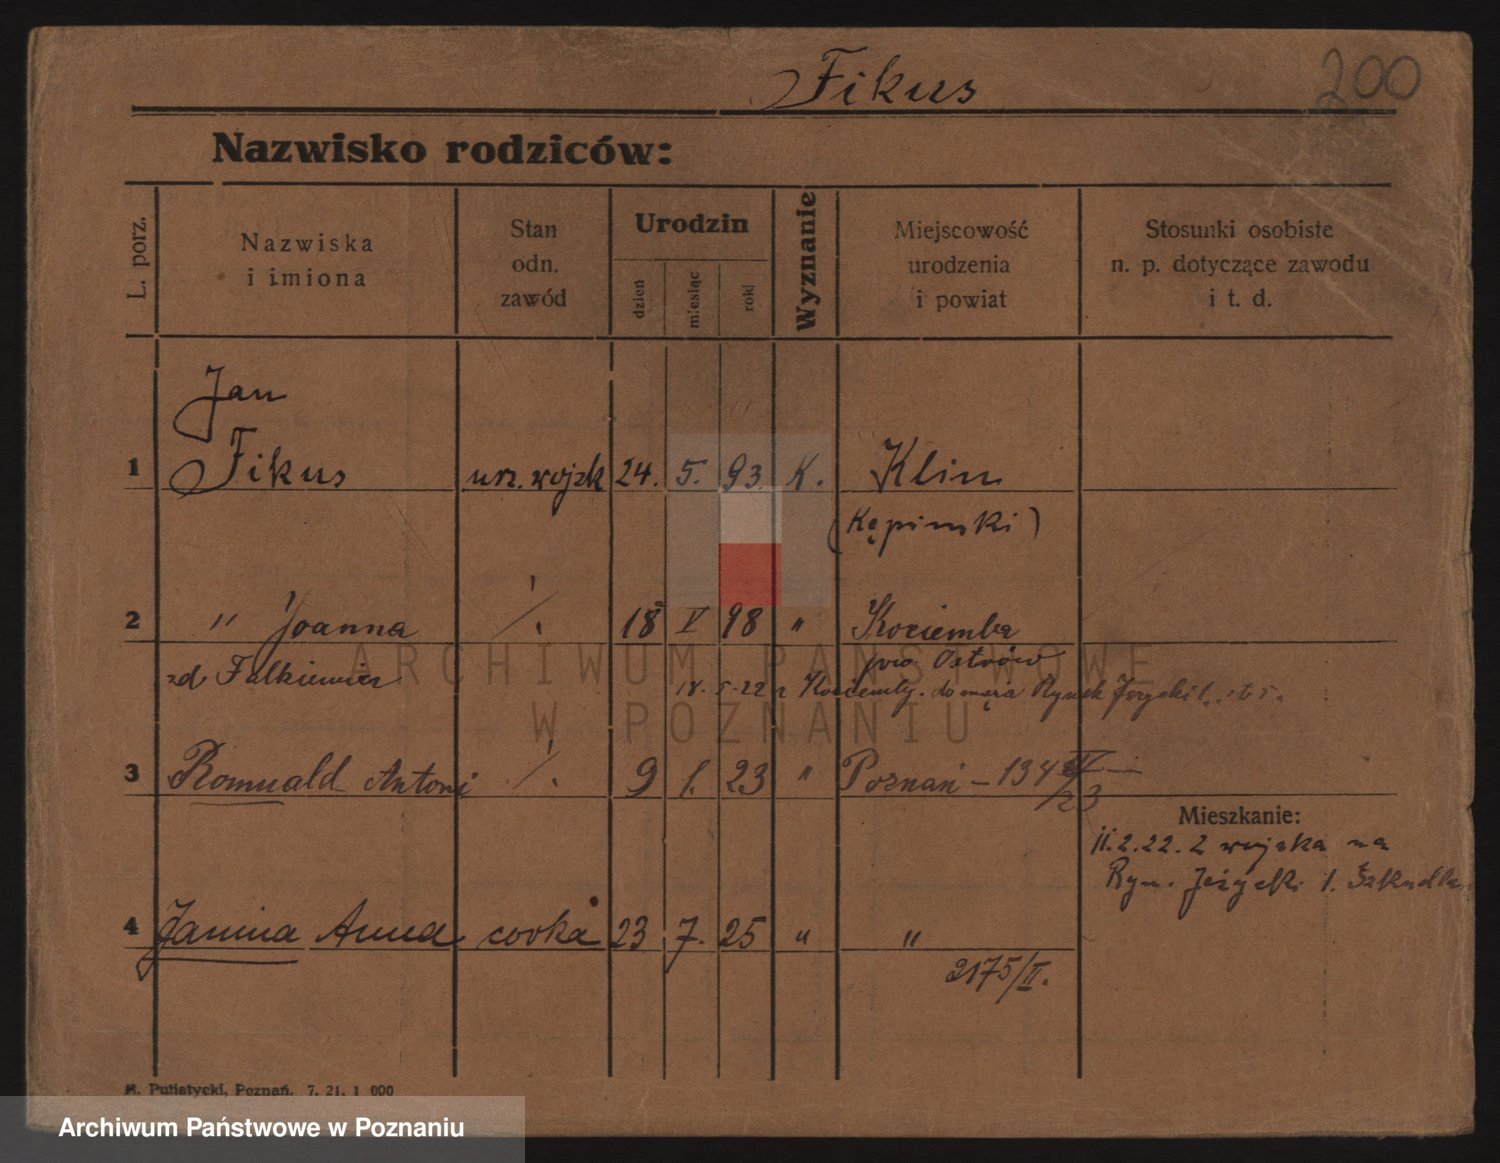 Fikus 200
Nazwisko rodziców:
L. porz.
Nazwiska
i imiona
Stan
odn.
zawód
Urodzin
dzień
miesiąc
rok
Wyznanie
Miejscowość
urodzenia
i powiat
Stosunki osobiste
n. p. dotyczące zawodu
i t. d.
Jan
1 Fikus urz. wojsk 24. 5. 93 K. Klin
(Kępiński)
2 " Joanna /. 18 V 98 " Kociemba
zd Falkiewicz pow. Ostrów
18. 5. 22 z Kociemby. do męża Rynek
3 Romuald Antoni /. 9 1. 23 " Poznań - 134
/23
Mieszkanie:
11.2.22. z wojska na
Ryn. Jeżycki 1.
4 Janina Anna córka 23 7. 25 " "
2175/II.
M. Putiatycki, Poznań. 7. 21. 1 000
ARCHIWUM PAŃSTWOWE
W POZNANIU
Archiwum Państwowe w Poznaniu